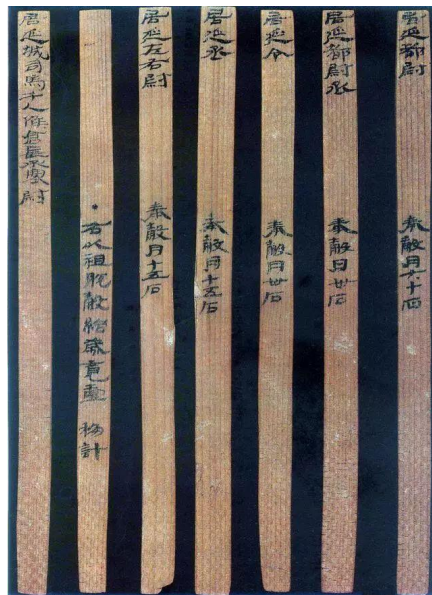 居延都尉 奉穀月六十石
居延都尉丞 奉穀月卅石
居延令 奉穀月卅石
居延丞 奉穀月十五石
居延左右尉 奉穀月十五石
·右以祖脫穀給歲竟壹移計
居延城司馬千人候倉長丞塞尉